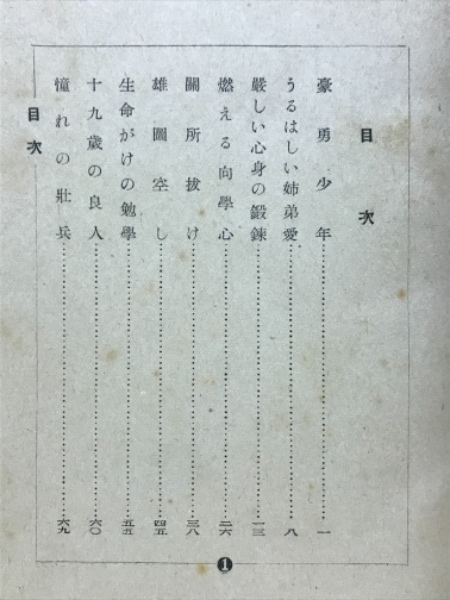 目次
豪勇少年……一
うるはしい姉弟愛……八
嚴しい心身の鍛錬……一三
燃える向學心……二六
關所拔け……三八
雄圖空し……四五
生命がけの勉學……五五
十九歳の良人……六〇
憧れの壯兵……六九
目次
1